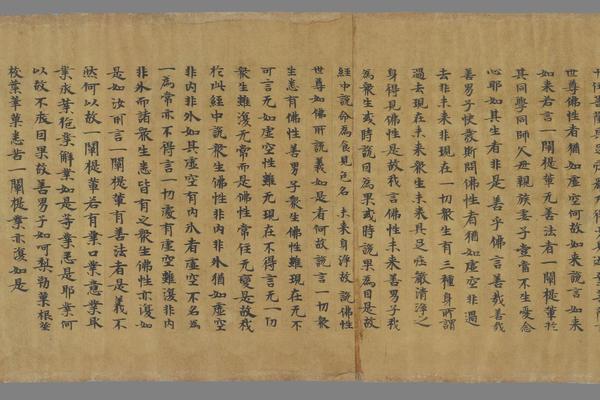 世尊佛性者猶如虛空何故如来說言如来
如来若言一闡提輩无善法者一闡提輩扵
其同學同師父母親族妻子豈當不生愛念
心耶如其生者非是善乎佛言善哉善哉
善男子快發斯問佛性者猶如虛空非過
去非未来非現在一切衆生有三種身所謂
過去現在未来衆生未来具足莊嚴清淨之
身得見佛性是故我言佛性未来善男子我
為衆生或時說因為果或時說果為因是故
經中說命為食見色名 未来身淨故說佛性
世尊如佛所說義如是者何故說言一切衆
生悉有佛性善男子衆生佛性雖現在无不
可言无如虛空性雖无現在不得言无一切
衆生雖復无常而是佛性常住无變是故我
扵此經中說衆生佛性非內非外猶如虛空
非內非外如其虛空有內外者虛空不名為
一為常亦不得言一切處有虛空雖復非內
非外而諸衆生悉皆有之衆生佛性亦復如
是如汝所言一闡提輩有善法者是義不
然何以故一闡提輩若有業口業意業取
業求業施業解業如是等業悉是耶業何
以故不求因果故善男子如呵梨勒菓根莖
枝葉華菓悉苦一闡提業亦復如是